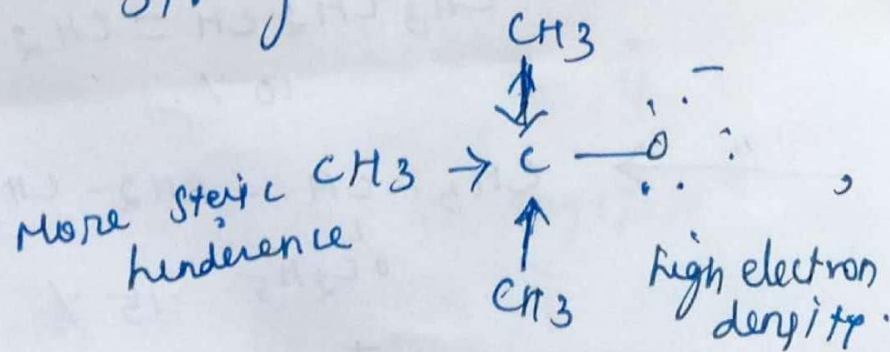 CH3
More Steric CH3 → C — O : − ,
hinderence
CH3
high electron
density.